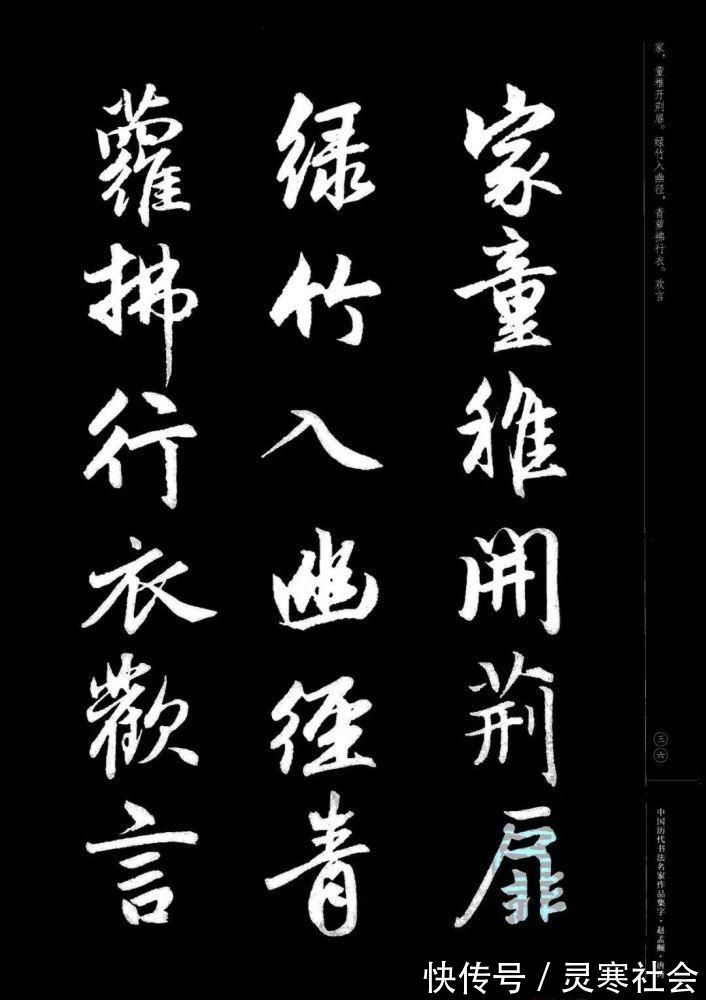 家童稚開荆扉
绿竹入幽徑青
蘿拂行衣歡言
家，童稚开荆扉。绿竹入幽径，青萝拂行衣。欢言
三六
中国历代书法名家作品集字·赵孟頫·唐诗
快传号／灵寒社会